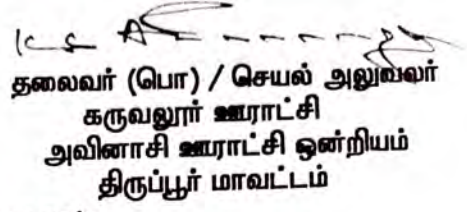 தலைவர் (பொ) / செயல் அலுவலர்
கருவலூர் ஊராட்சி
அவினாசி ஊராட்சி ஒன்றியம்
திருப்பூர் மாவட்டம்